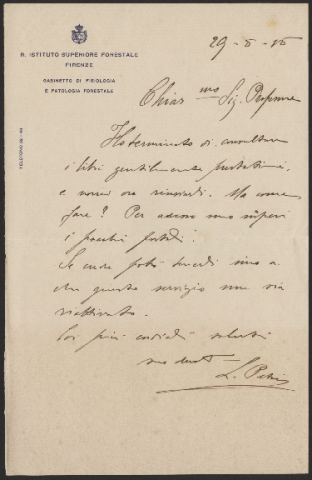 R. ISTITUTO SUPERIORE FORESTALE
FIRENZE
GABINETTO DI FISIOLOGIA
E PATOLOGIA FORESTALE
29-5-15
Chiar mo Sig. Professore
Ho terminato di consultare
i libri gentilmente prestatimi,
e vorrei ora rinviarli. Ma come
fare? Per adesso non
i pacchi postali.
Se crede potrò tenerli sino a
che questo servizio non sia
riattivato.
Coi più cordiali saluti
suo dev
L. Petri